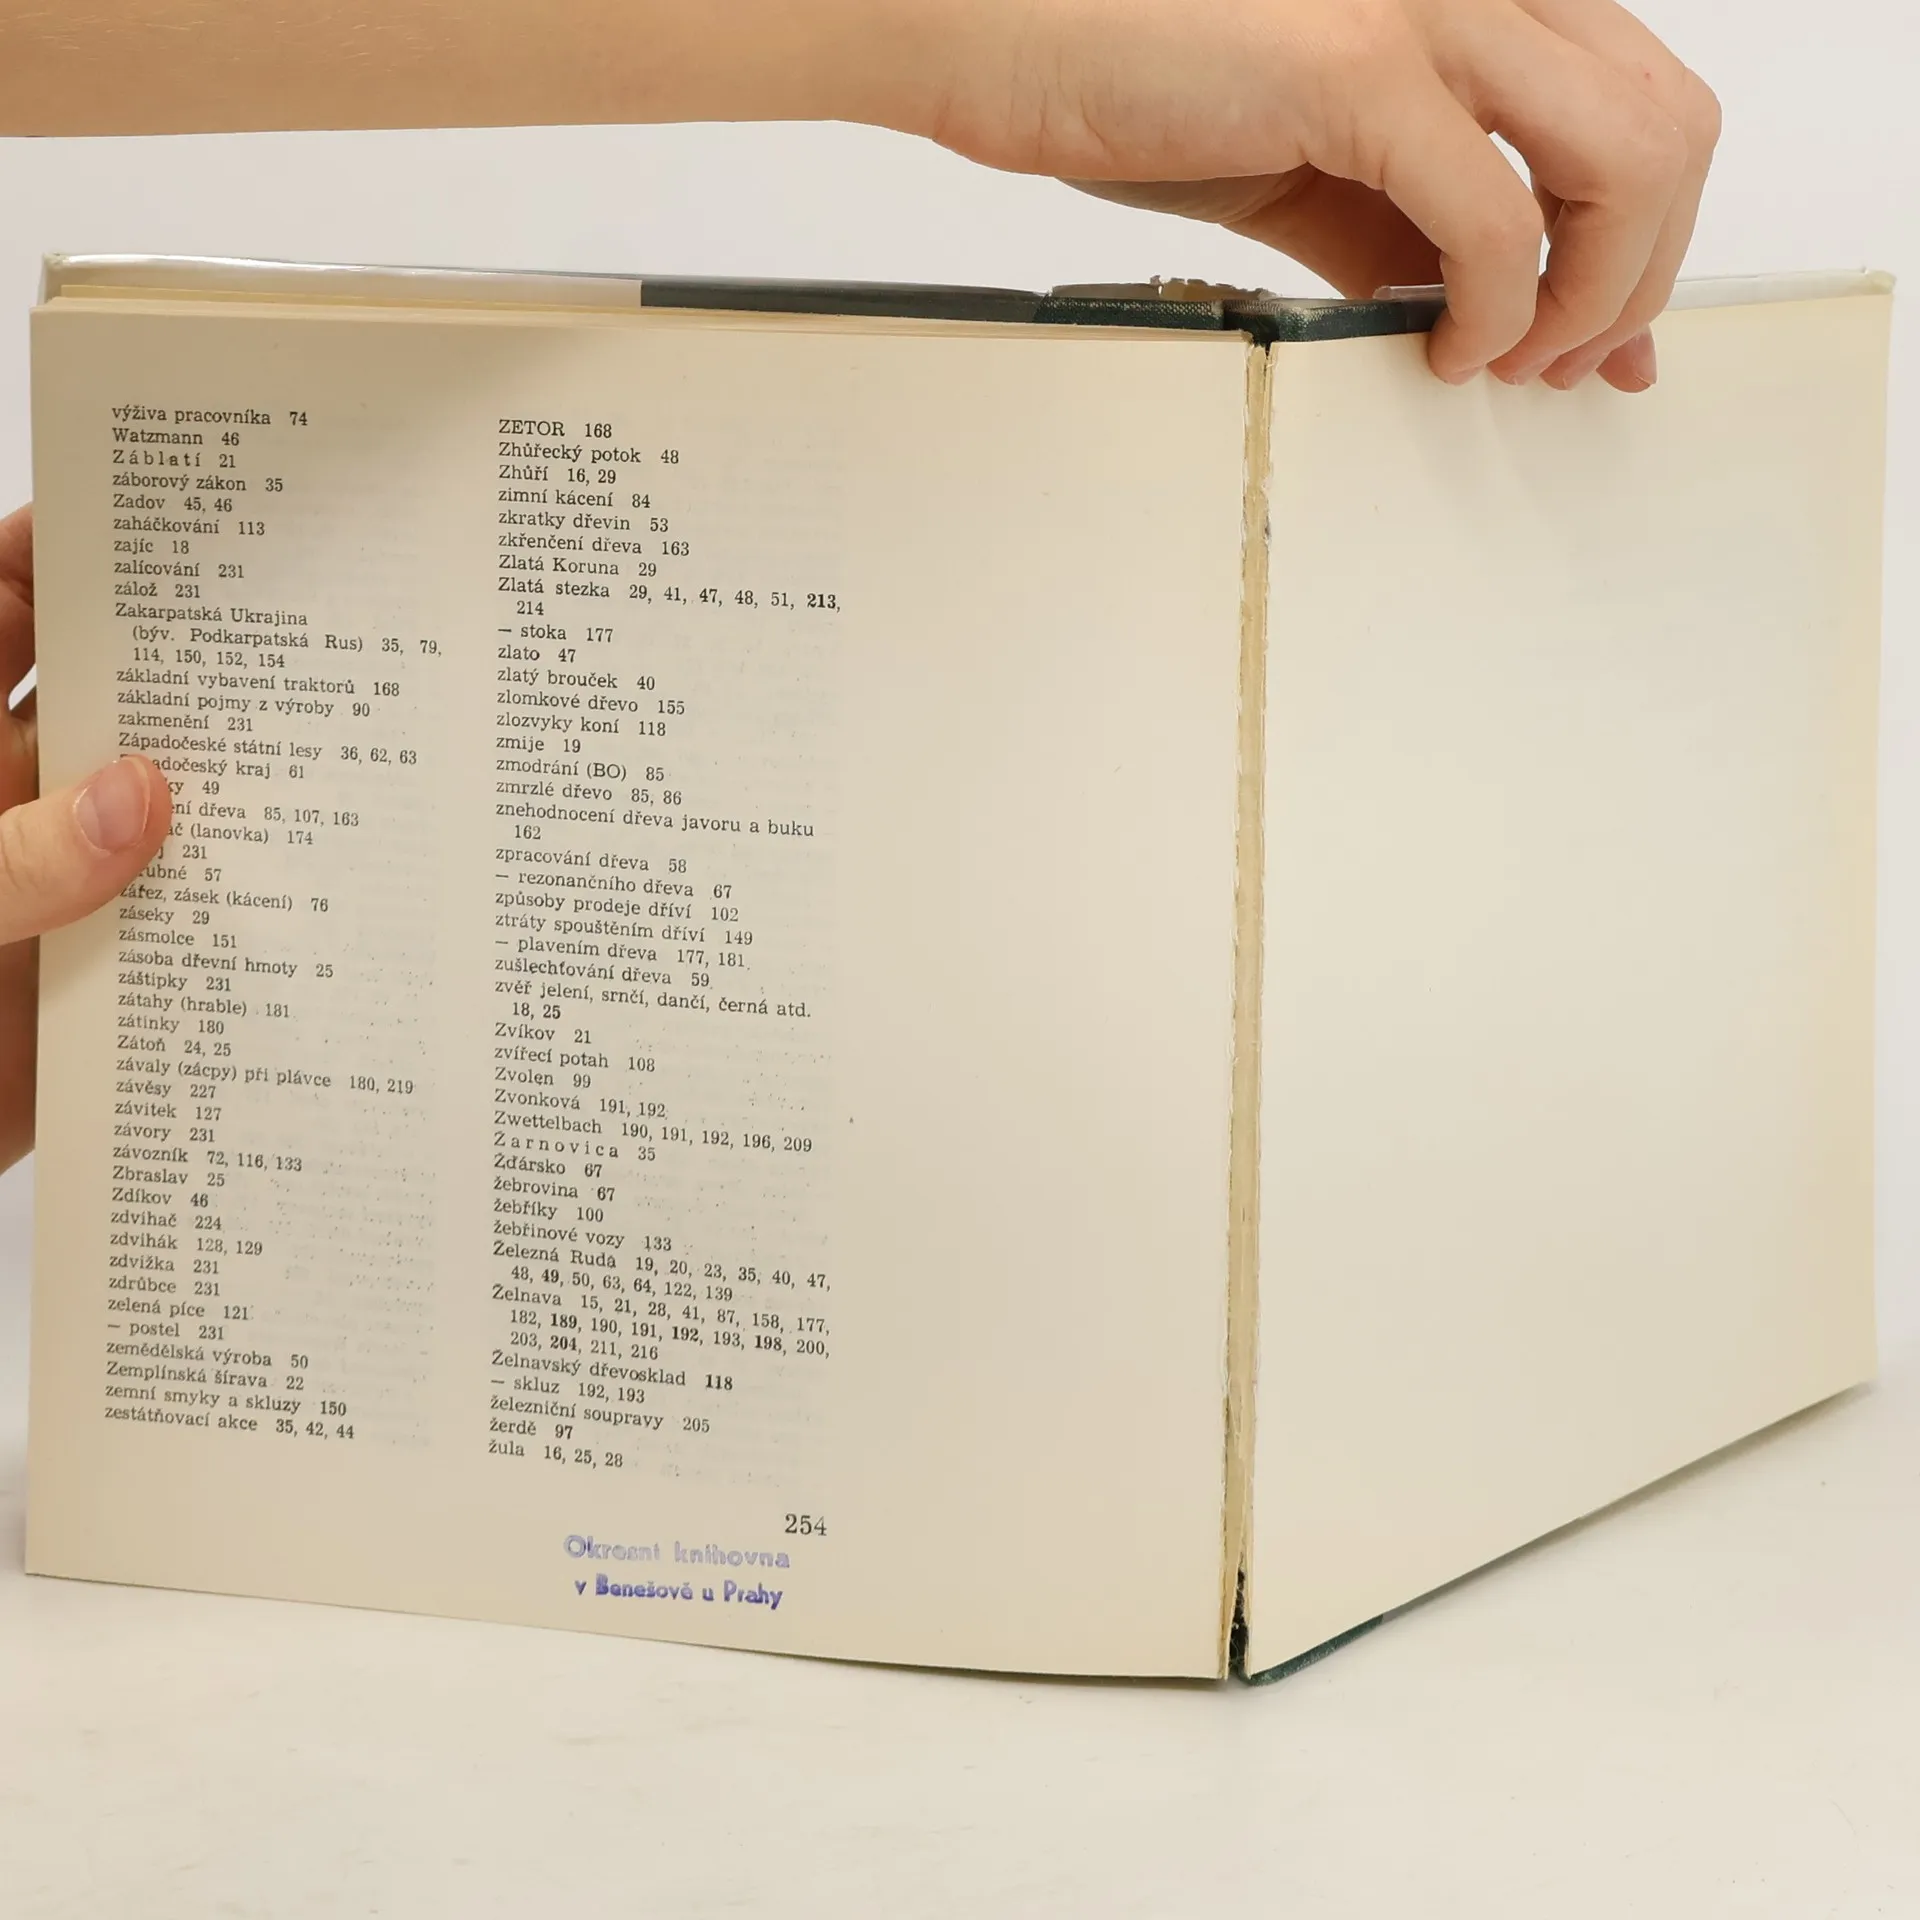 výživa pracovníka 74
Watzmann 46
Záblatí 21
záborový zákon 35
Zadov 45, 46
zaháčkování 113
zajíc 18
zalícování 231
zálož 231
Zakarpatská Ukrajina
(býv. Podkarpatská Rus) 35, 79,
114, 150, 152, 154
základní vybavení traktorů 168
základní pojmy z výroby 90
zakmenění 231
Západočeské státní lesy 36, 62, 63
kraj 61
49
dřeva 85, 107, 163
(lanovka) 174
231
57
zářez, zásek (kácení) 76
záseky 29
zásmolce 151
zásoba dřevní hmoty 25
záštipky 231
zátahy (hrable) 181
zátinky 180
Zátoň 24, 25
závaly (zácpy) při plávce 180, 219
závěsy 227
závitek 127
závory 231
závozník 72, 116, 133
Zbraslav 25
Zdíkov 46
zdvihač 224
zdvihák 128, 129
zdvižka 231
zdrůbce 231
zelená píce 121
— postel 231
zemědělská výroba 50
Zemplínská šírava 22
zemní smyky a skluzy 150
zestátňovací akce 35, 42, 44
ZETOR 168
Zhůřecký potok 48
Zhůří 16, 29
zimní kácení 84
zkratky dřevin 53
zkřenčení dřeva 163
Zlatá Koruna 29
Zlatá stezka 29, 41, 47, 48, 51, 213,
214
— stoka 177
zlato 47
zlatý brouček 40
zlomkové dřevo 155
zlozvyky koní 118
zmije 19
zmodrání (BO) 85
zmrzlé dřevo 85, 86
znehodnocení dřeva javoru a buku
162
zpracování dřeva 58
— rezonančního dřeva 67
způsoby prodeje dříví 102
ztráty spouštěním dříví 149
— plavením dřeva 177, 181
zušlechťování dřeva 59
zvěř jelení, srnčí, dančí, černá atd.
18, 25
Zvíkov 21
zvířecí potah 108
Zvolen 99
Zvonková 191, 192
Zwettelbach 190, 191, 192, 196, 209
Žarnovica 35
Žďársko 67
žebrovina 67
žebříky 100
žebřinové vozy 133
Železná Ruda 19, 20, 23, 35, 40, 47,
48, 49, 50, 63, 64, 122, 139
Želnava 15, 21, 28, 41, 87, 158, 177,
182, 189, 190, 191, 192, 193, 198, 200,
203, 204, 211, 216
Želnavský dřevosklad 118
— skluz 192, 193
železniční soupravy 205
žerdě 97
žula 16, 25, 28
254
Okresní knihovna
v Benešově u Prahy